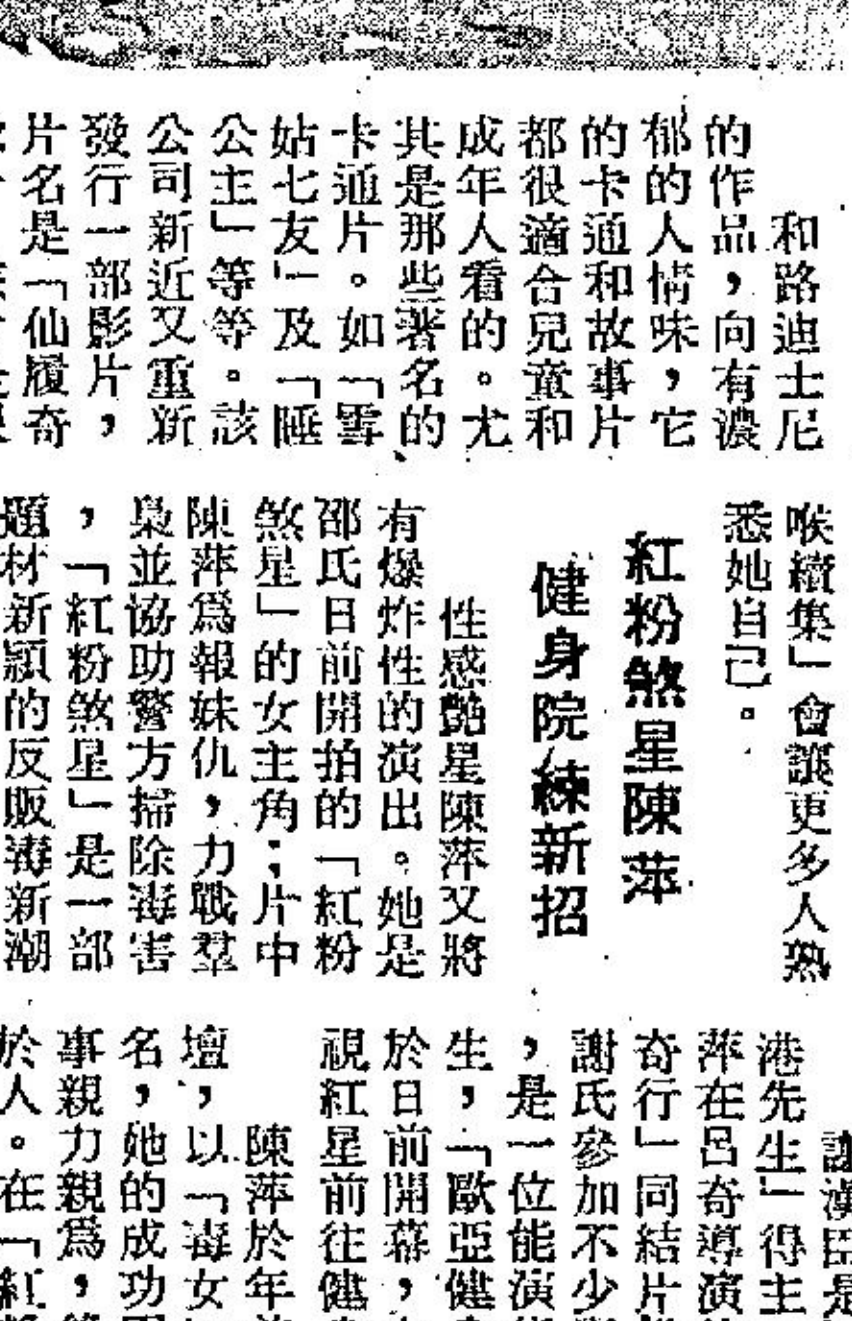 和路迪士尼
的作品，向有濃
郁的人情味，它
的卡通和故事片
都很適合兒童和
成年人看的。尤
其是那些著名的
卡通片。如「雪
姑七友」及「睡
公主」等等。該
公司新近又重新
發行一部影片，
片名是「仙履奇
喉續集」會讓更多人熟
悉她自己。
紅粉煞星陳萍
健身院練新招
性感艷星陳萍又將
有爆炸性的演出。她是
邵氏日前開拍的「紅粉
煞星」的女主角；片中
陳萍爲報妹仇，力戰羣
梟並協助警方掃除毒害
，「紅粉煞星」是一部
題材新穎的反販毒新潮
謝漢臣是
港先生」得主
萍在呂奇導演
奇行」同結片
謝氏參加不少
，是一位能演
生，「歐亞健
於日前開幕，
視紅星前往健
陳萍於年
壇，以「毒女
名，她的成功
事親力親爲，
於人。在「紅